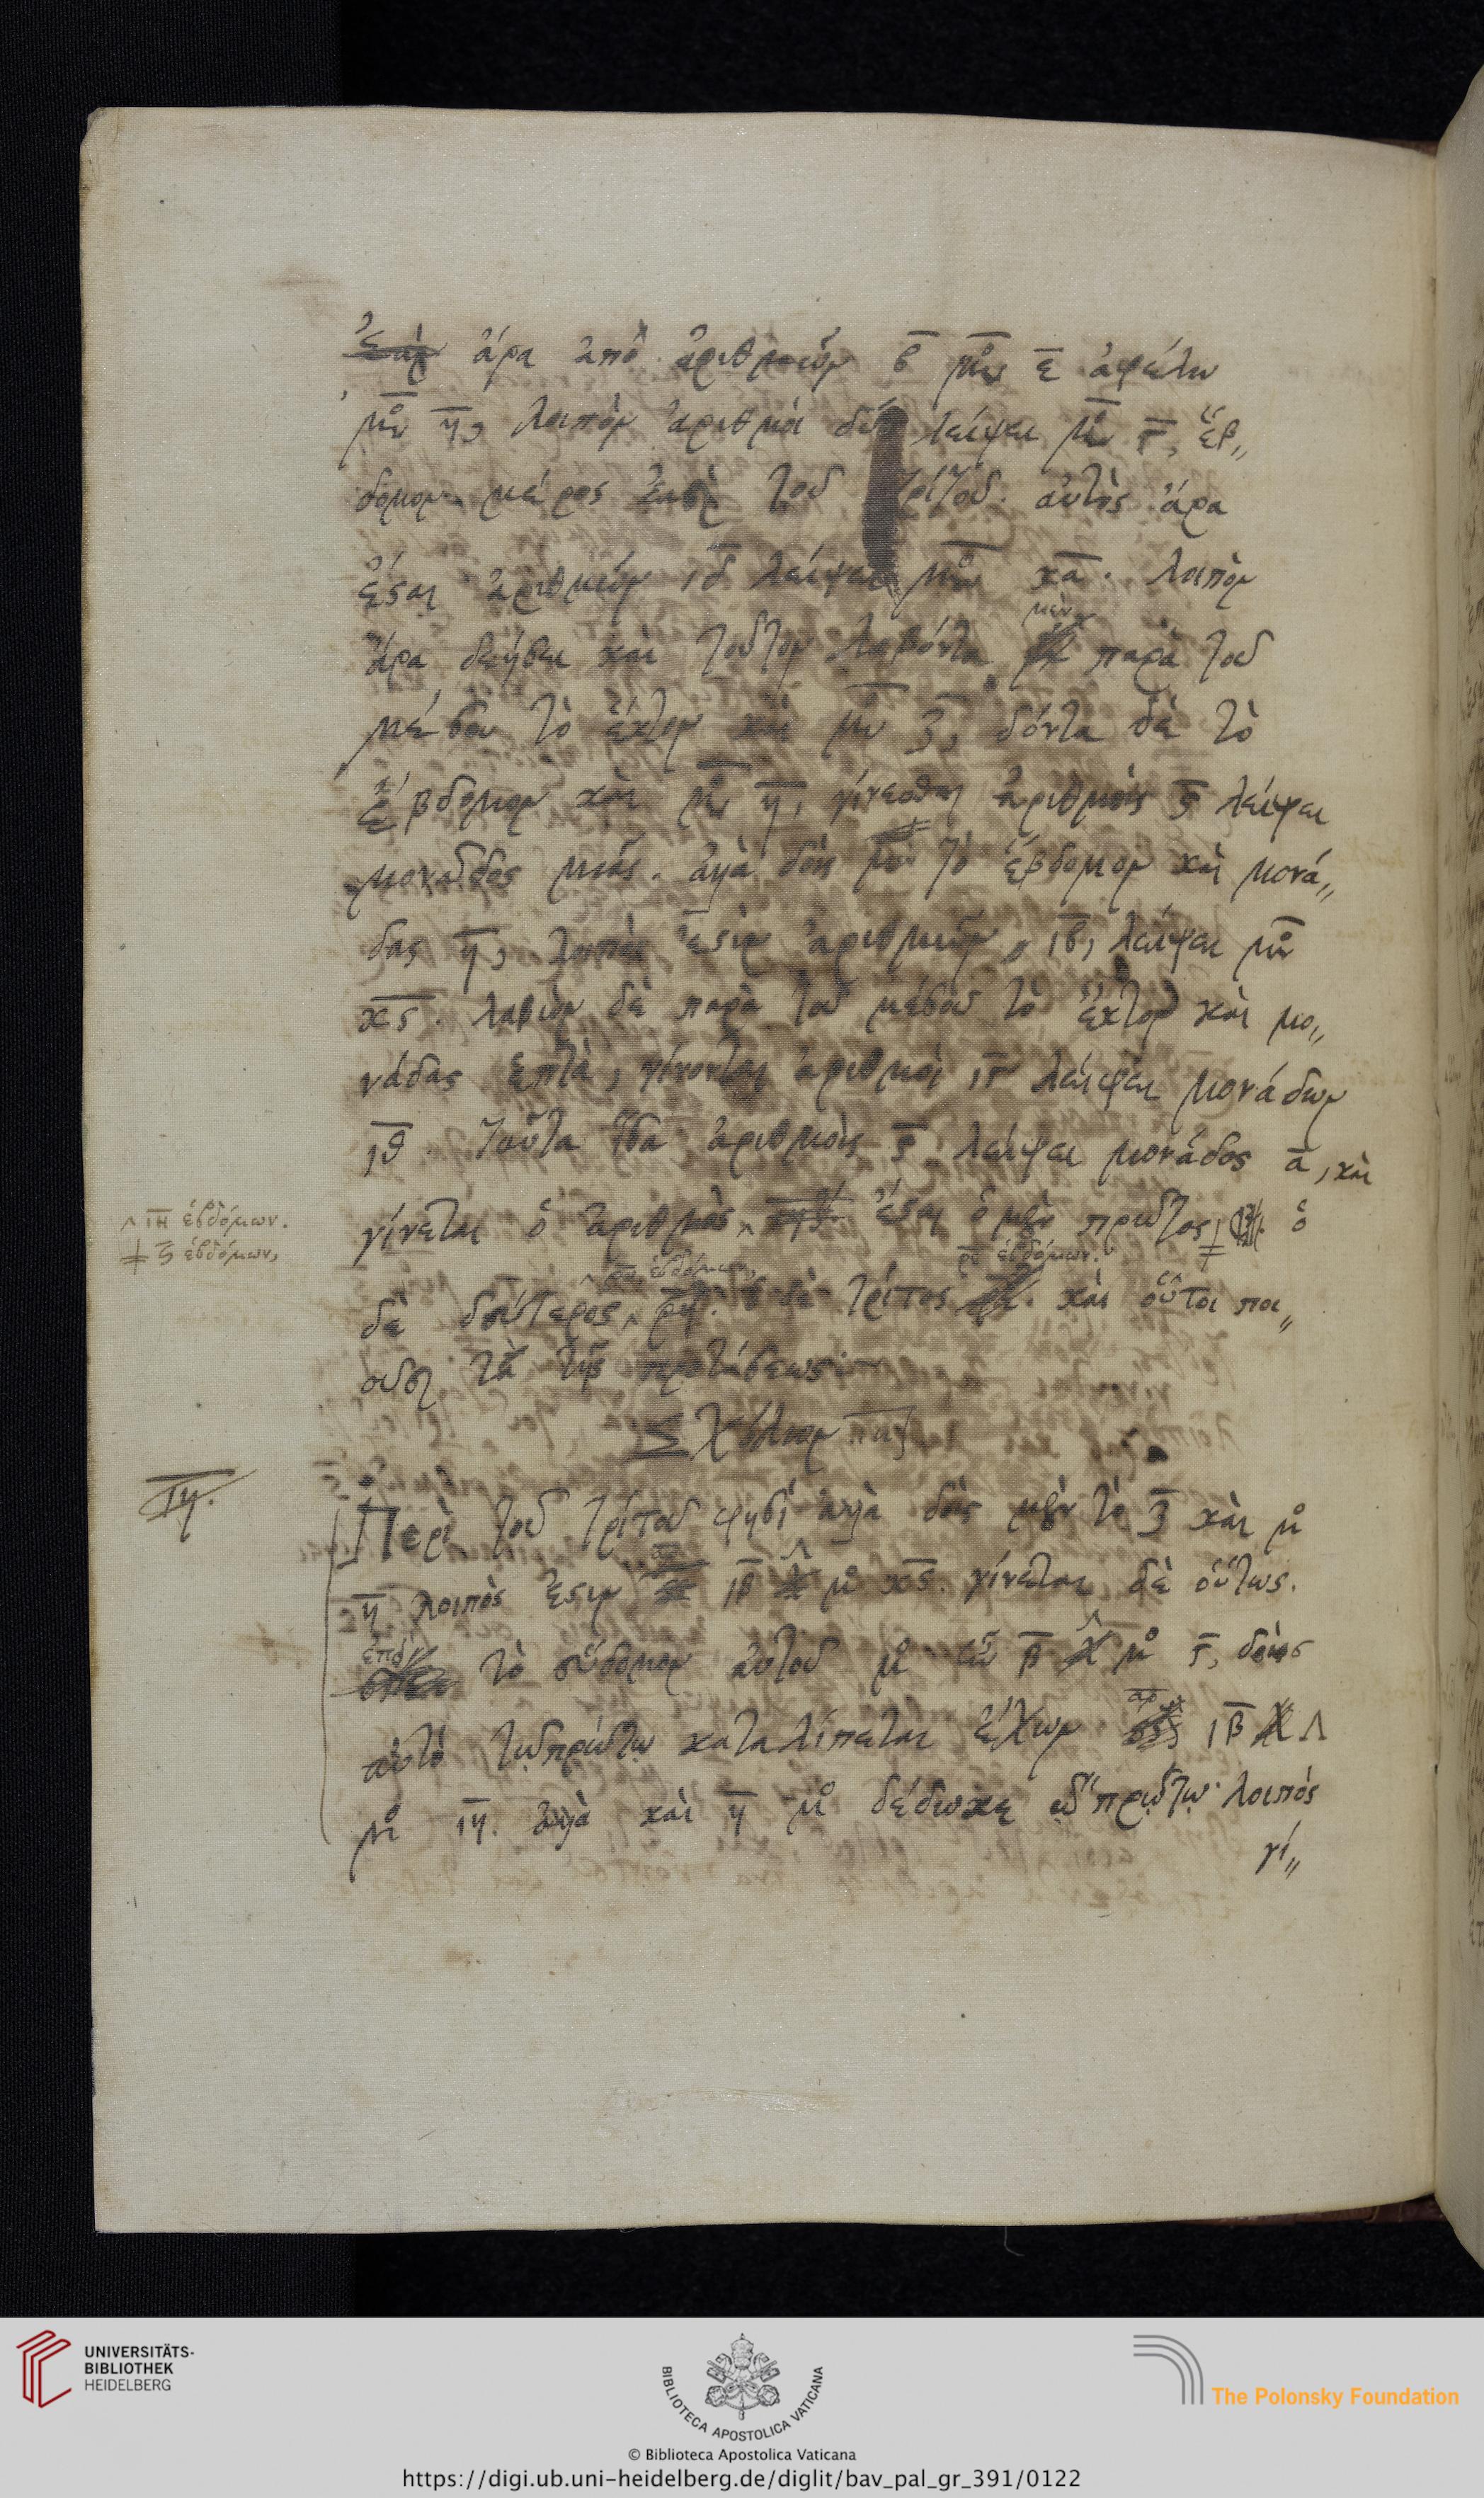 ἐὰν ἄρα ἀπὸ ἀριθμῶν β μο ε ἀφέλω
μο η, λοιπὸν ἀριθμοὶ δύο λείψει μο γ, ἕβ„
δομον μέρος ἐστὶ τοῦ τρίτου. αὐτὸς ἄρα
ἔσται ἀριθμῶν ιδ λείψει μο κα. λοιπὸν
ἄρα δεήσει καὶ τοῦτον λαβόντα μὲν παρὰ τοῦ
μέσου τὸ ἕκτον καὶ μο ζ, δόντα δὲ τὸ
ἕβδομον καὶ μο η, γίνεσθαι ἀριθμοὺς ς λείψει
μονάδος μιᾶς. ἀλλὰ δοὺς μὲν τὸ ἕβδομον καὶ μονά„
δας η, λοιπὸς ἐστὶν ἀριθμῶν ιβ, λείψει μο
κς. λαβὼν δὲ παρὰ τοῦ μέσου τὸ ἕκτον καὶ μο„
νάδας ἑπτὰ, γίνονται ἀριθμοὶ ιγ λείψει μονάδων
ιθ. ταῦτα ἴσα ἀριθμοῖς ς λείψει μονάδος α, καὶ
γίνεται ὁ ἀριθμὸς ἔσται ὁ μὲν πρῶτος ὁ
^ ιη ἑβδόμων.
ζ ἑβδόμων,
δὲ δεύτερος ὁ δὲ τρίτος ρε ἑβδόμων. καὶ οὗτοι ποι„
οῦσι τὰ τῆς προτάσεως
Σχόλιον
ιη.
Περὶ τοῦ τρίτου φησὶ ἀλλὰ δοὺς μὲν τὸ ζ καὶ μο
η λοιπὸς ἐστιν ιβ Λ μο κς. γίνεται δὲ οὕτως.
ἐπεὶ τὸ ἕβδομον αὐτοῦ β Λ μο γ, δοὺς
αὐτὸ τῷ πρώτῳ καταλίπεται ἔχων ιβ Λ
μο ιη. ἀλλὰ καὶ η μο δέδωκε τῷ πρώτῳ λοιπὸς
γί„
UNIVERSITÄTS-
BIBLIOTHEK
HEIDELBERG
BIBLIOTECA APOSTOLICA VATICANA
The Polonsky Foundation
© Biblioteca Apostolica Vaticana
https://digi.ub.uni-heidelberg.de/diglit/bav_pal_gr_391/0122